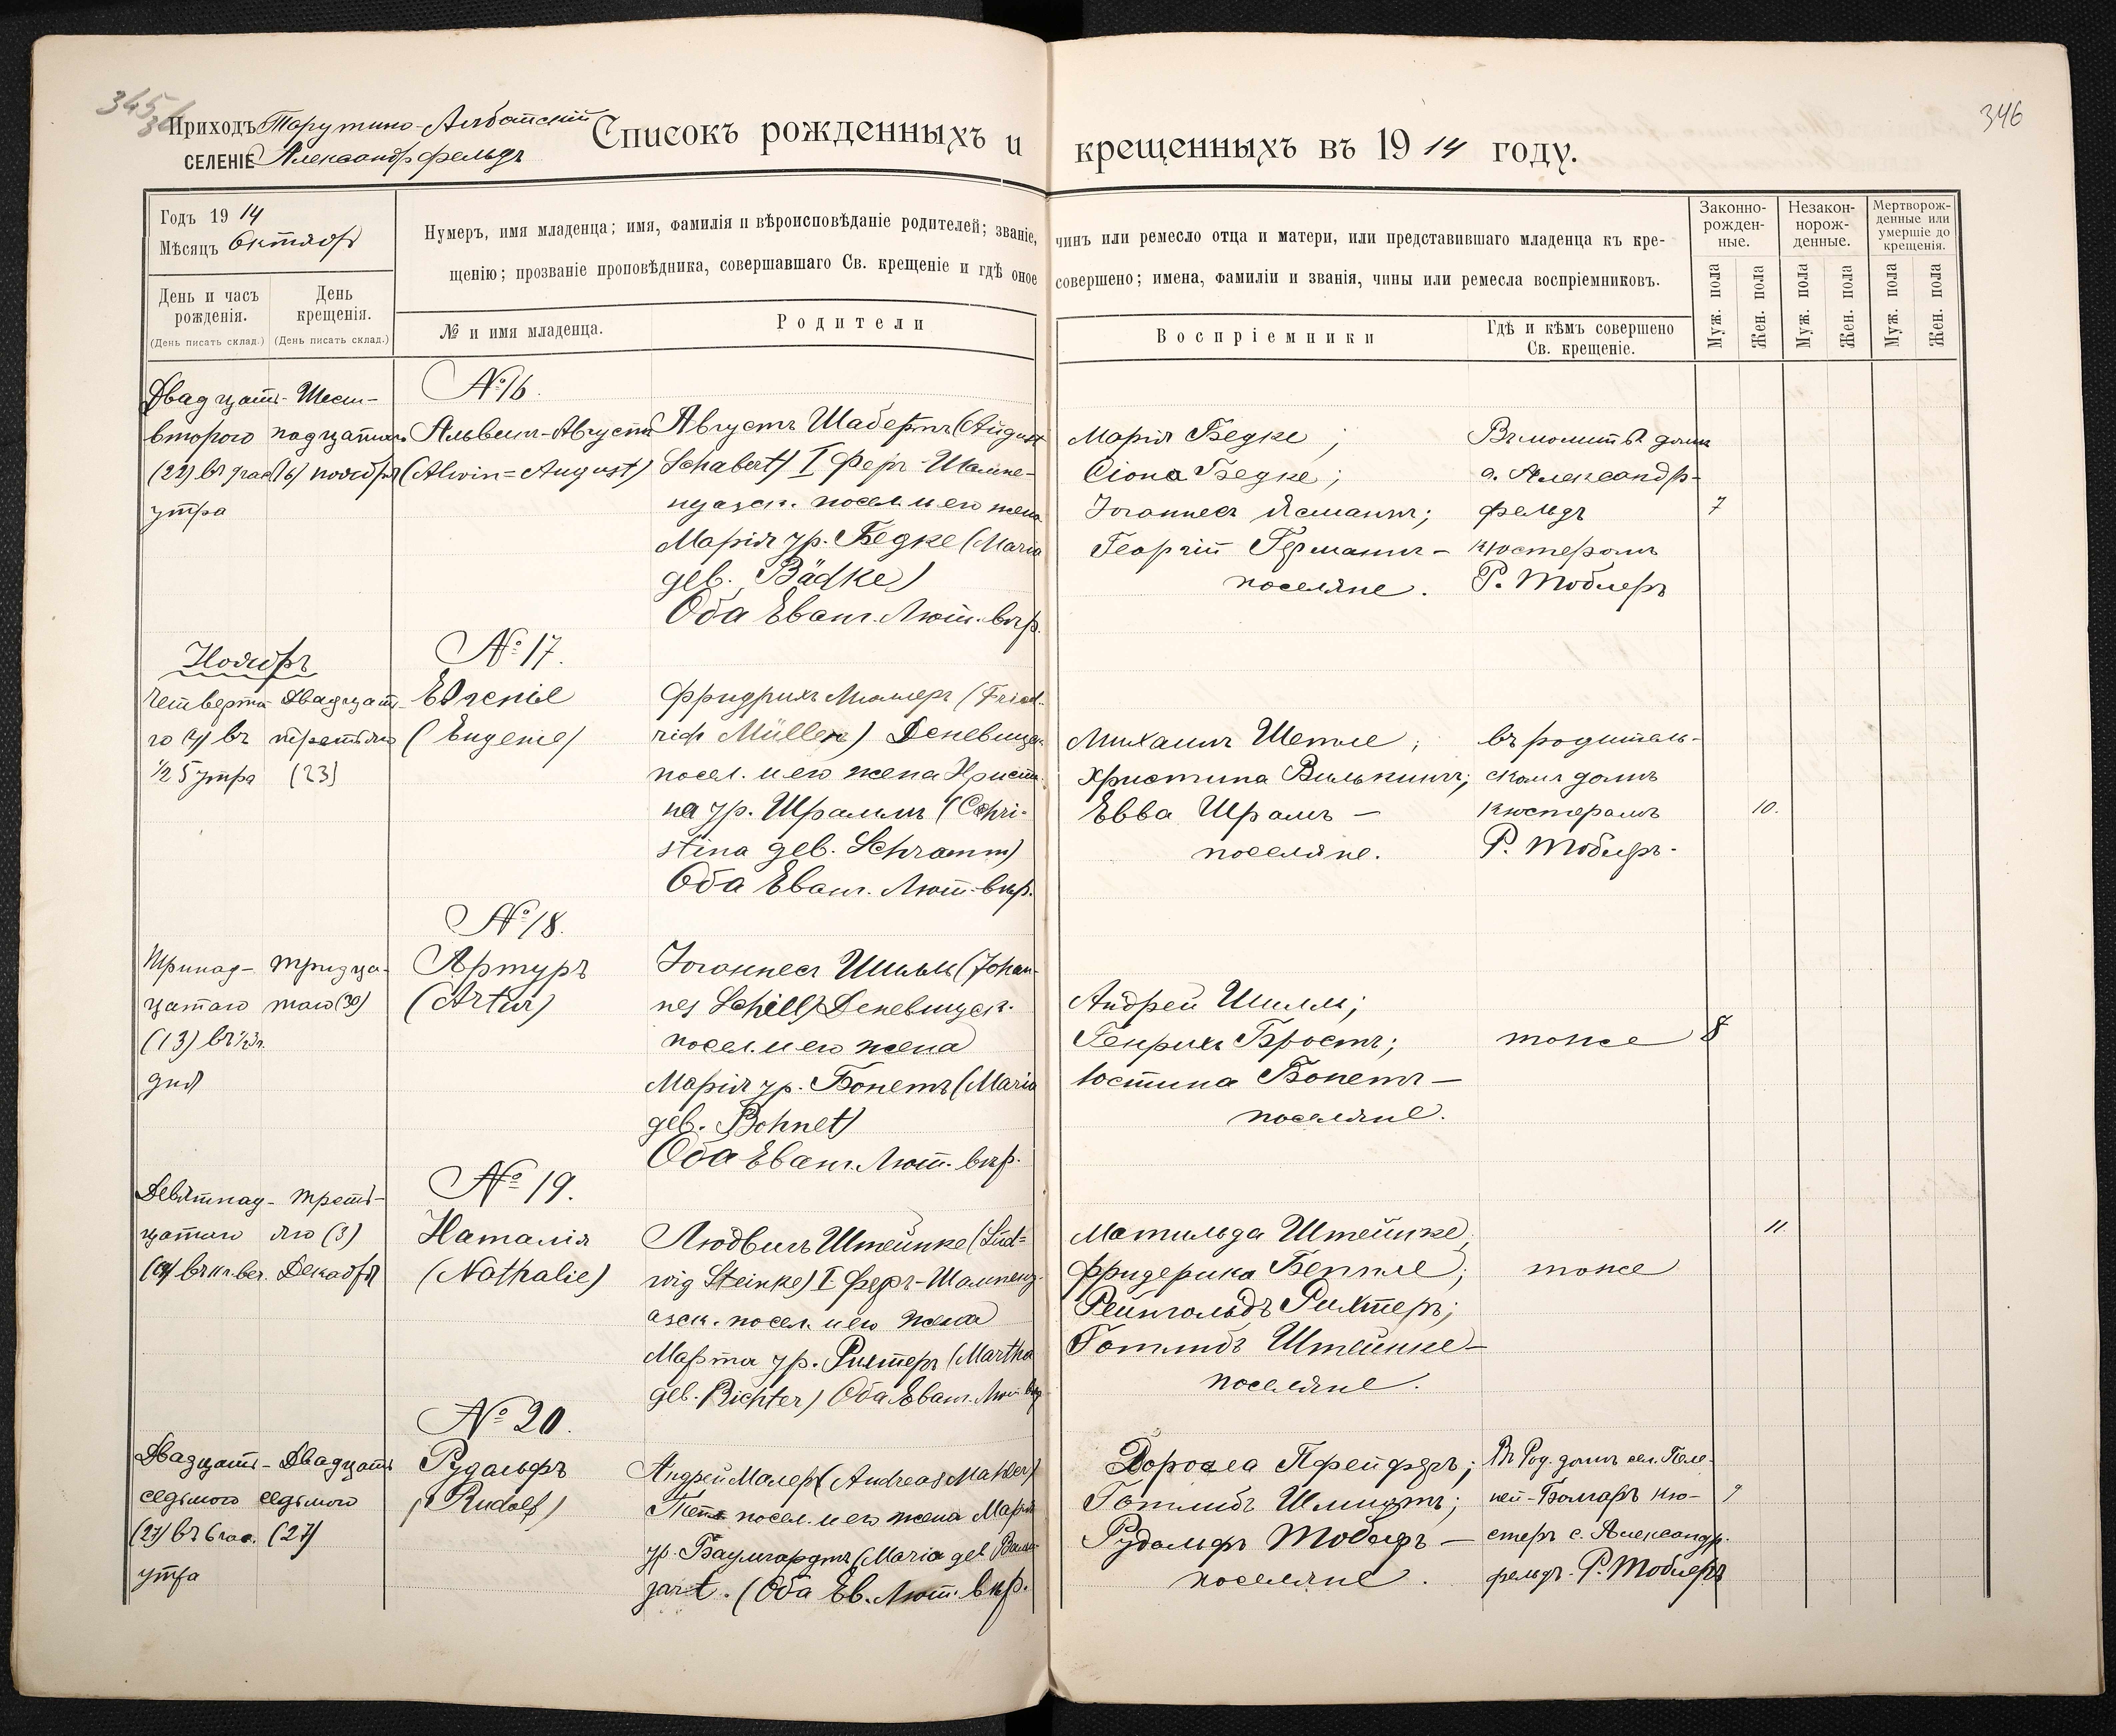 345
346
Приходъ Тарутино-Альботскій
СЕЛЕНІЕ Александрфельдъ
Списокъ рожденныхъ и крещенныхъ въ 1914 году.
Годъ 1914
Мѣсяцъ Октябрь
День и часъ рожденія.
(День писать склад.)
День крещенія.
(День писать склад.)
Нумеръ, имя младенца; имя, фамилія и вѣроисповѣданіе родителей; званіе, чинъ или ремесло отца и матери, или представившаго младенца къ кре-
щенію; прозваніе проповѣдника, совершавшаго Св. крещеніе и гдѣ оное совершено; имена, фамиліи и званія, чины или ремесла воспріемниковъ.
№ и имя младенца.
Родители
Воспріемники
Гдѣ и кѣмъ совершено
Св. крещеніе.
Законно-
рожден-
ные.
Незакон-
норож-
денные.
Мертворож-
денные или
умершіе до
крещенія.
Муж. пола
Жен. пола
Муж. пола
Жен. пола
Муж. пола
Жен. пола
Двадцать-
второго
(22) въ
утра
Шест-
надцатаго
(16) ноября
№ 16.
Альвинъ-Августъ
(Alwin=August)
Августъ Шабертъ (August
Schabert) I Феръ-Шампе-
нуазск. посел. и его жена
Марія ур. Бедке (Maria
geb. Bädke)
Оба Еванг. Лют. вѣр.
Марія Бедке;
Сіона Бедке;
Іоганнесъ
Георгій Германъ -
поселяне.
Въ молитв. домѣ
с. Александр-
фельдъ
кюстеромъ
Р. Тоблеръ
7
Ноябрь
Четверта-
го (4) въ
½ 5 утра
Двадцать
третьяго
(23)
№ 17.
Евгенiе
(Eugenie)
Фридрихъ Миллеръ (Fried-
rich Müller) Деневицк.
посел. и его жена Христи-
на ур. Шраммъ (Chri-
stina geb. Schramm)
Оба Еванг. Лют. вѣр.
Михаилъ Шепле;
Христина Вилькингъ;
Евва Шрамъ -
поселяне.
въ родитель-
скомъ домѣ
кюстеромъ
Р. Тоблеръ.
10.
Тринад-
цатаго
(13) въ ½3ч.
дня
тридца-
таго (30)
№ 18.
Артуръ
(Artur)
Іоганнесъ Шилль (Johan-
nes Schill) Деневицск.
посел. и его жена
Марія ур. Бонетъ (Maria
geb. Bohnet)
Оба Еванг. Лют. вѣр.
Андрей Шилль;
Генрихъ Бростъ;
Юстина Бонетъ -
поселяне.
тоже
8
Девятнад-
цатаго
(19) въ веч.
треть-
яго (3)
Декабря
№ 19.
Наталія
(Nathalie)
Людвигъ Штейнке (Lud=
wig Steinke) I Феръ-Шампену-
азск. посел. и его жена
Марта ур. Рихтеръ (Martha
geb. Richter) Оба Еванг. Лют. вѣр.
Матильда Штейнке;
Фридерика Беттле;
Рейнгольдъ Рихтеръ;
Готлибъ Штейнке -
поселяне.
тоже
11.
Двадцать-
седьмого
(27) въ 6 час.
утра
Двадцать
седьмого
(27)
№ 20.
Рудольфъ
(Rudolf)
Андрей Малеръ (Andreas Mahler)
посел. и его жена Марія
ур. Баумгардтъ (Maria geb. Baum-
gart. (Оба Ев. Лют. вѣр.
Доротеа Пфейферъ;
Готлибъ Шмидтъ;
Рудольфъ Тоблеръ -
поселяне.
Въ Род. домѣ сел.
кю-
стеръ с. Александр-
фельдъ. Р. Тоблеръ
9